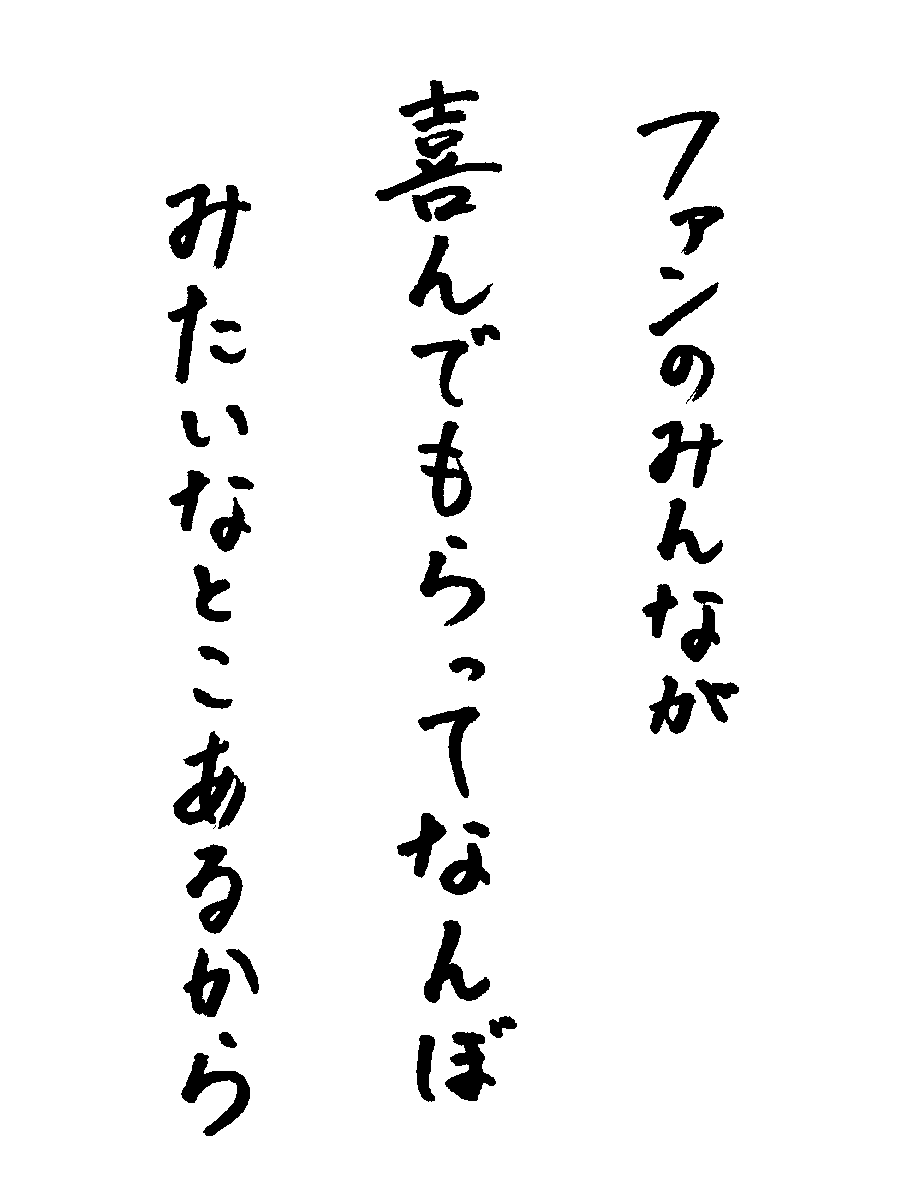 ファンのみんなが
喜んでもらってなんぼ
みたいなとこあるから